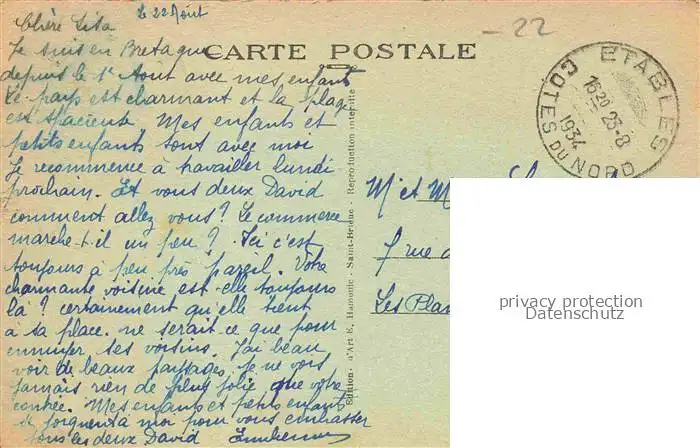 le 22 Août
Chère Lisa
22
Je suis en Bretagne
CARTE POSTALE
depuis le 1er Août avec mes enfants
Le pays est charmant et la plage
est spacieuse Mes enfants et
petits enfants sont avec moi
Je recommence à travailler lundi
prochain. Et vous deux David
comment allez vous? Le commerce
marche-t-il un peu? Ici c'est
toujours à peu près pareil. Votre
charmante voisine est-elle toujours
là? certainement qu'elle tient
à sa place. ne serait ce que pour
ennuyer ses voisins. J'ai beau
voir de beaux paysages, je ne vois
jamais rien de plus jolie que votre
contrée. Mes enfants et petits enfants
se joignent à moi pour vous embrasser
tous les deux David
Edition d'Art E. Hamonic - Saint-Brieuc - Reproduction interdite
ETABLES
16 20 23-8
1934
COTES DU NORD
Mr et M
7 rue d
Les Pla
privacy protection
Datenschutz